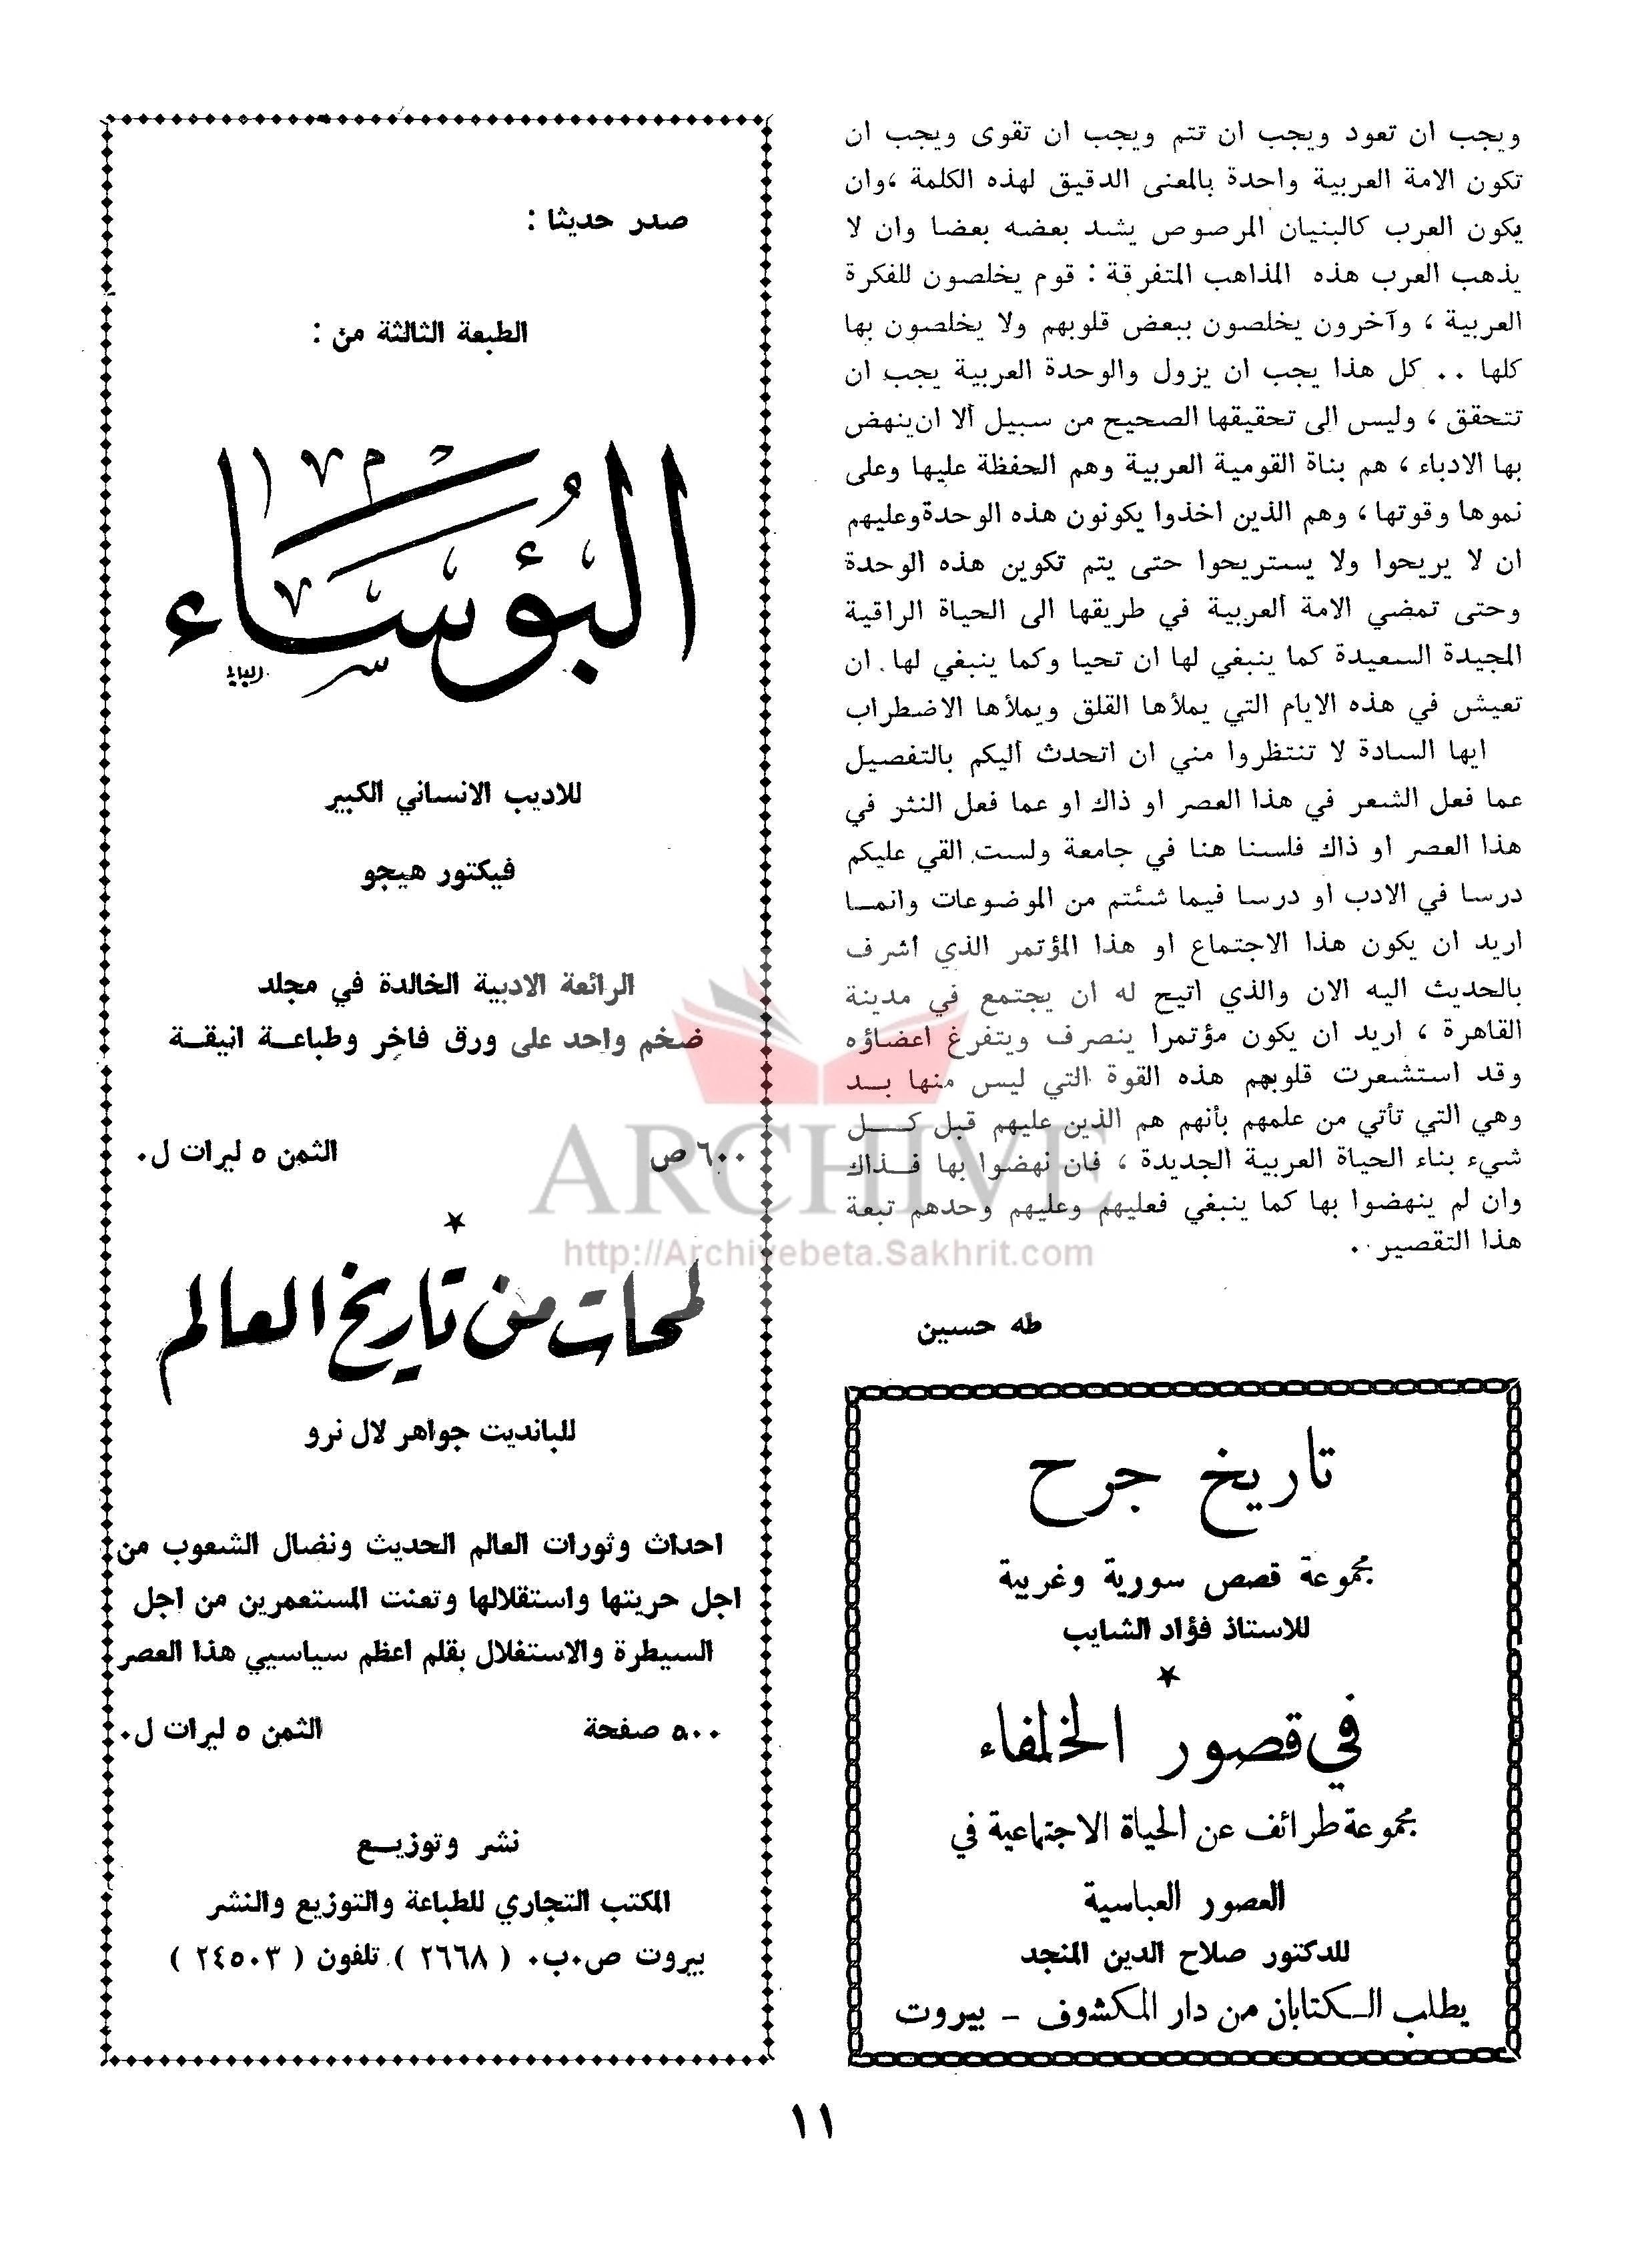 ويجب ان تعود ويجب ان تتم ويجب ان تقوى ويجب ان
تكون الامة العربية واحدة بالمعنى الدقيق لهذه الكلمة ، وان
يكون العرب كالبنيان المرصوص يشد بعضه بعضا وان لا
يذهب العرب هذه المذاهب المتفرقة : قوم يخلصون للفكرة
العربية ، وآخرون يخلصون ببعض قلوبهم ولا يخلصون بها
كلها .. كل هذا يجب ان يزول والوحدة العربية يجب ان
تتحقق ، وليس الى تحقيقها الصحيح من سبيل ألا ان ينهض
بها الادباء ، هم بناة القومية العربية وهم الحفظة عليها وعلى
نموها وقوتها ، وهم الذين اخذوا يكونون هذه الوحدة وعليهم
ان لا يريحوا ولا يستريحوا حتى يتم تكوين هذه الوحدة
وحتى تمضي الامة ألعربية في طريقها الى الحياة الراقية
المجيدة السعيدة كما ينبغي لها ان تحيا وكما ينبغي لها . ان
تعيش في هذه الايام التي يملأها القلق ويملأها الاضطراب
ايها السادة لا تنتظروا مني ان اتحدث أليكم بالتفصيل
عما فعل الشعر في هذا العصر او ذاك او عما فعل النثر في
هذا العصر او ذاك فلسنا هنا في جامعة ولست القي عليكم
درسا في الادب او درسا فيما شئتم من الموضوعات وانمـا
اريد ان يكون هذا الاجتماع او هذا المؤتمر الذي اشرف
بالحديث اليه الان والذي اتيح له ان يجتمع في مدينة
القاهرة ، اريد ان يكون مؤتمرا ينصرف ويتفرغ اعضاؤه
وقد استشعرت قلوبهم هذه القوة التي ليس منها بـد
وهي التي تأتي من علمهم بأنهم هم الذين عليهم قبل كـل
شيء بناء الحياة العربية الجديدة ، فان نهضوا بها فـذاك
وان لم ينهضوا بها كما ينبغي فعليهم وعليهم وحدهم تبعة
هذا التقصير ..
طه حسين
تاريخ جرح
مجموعة قصص سورية وغربية
للاستاذ فؤاد الشايب
★
في قصور الخلفاء
مجموعة طرائف عن الحياة الاجتماعية في
العصور العباسية
للدكتور صلاح الدين المنجد
يطلب الـكتابان من دار المكشوف - بيروت
صدر حديثا :
الطبعة الثالثة من :
البؤساء
للاديب الانساني الكبير
فيكتور هيجو
الرائعة الادبية الخالدة في مجلد
ضخم واحد على ورق فاخر وطباعـة انيقـة
٦٠٠ ص الثمن ٥ ليرات ل.
★
لمحات من تاريخ العالم
للبانديت جواهر لال نرو
احداث وثورات العالم الحديث ونضال الشعوب من
اجل حريتها واستقلالها وتعنت المستعمرين من اجل
السيطرة والاستغلال بقلم اعظم سياسيي هذا العصر
٥٠٠ صفحة الثمن ٥ ليرات ل.
نشر وتوزيـع
المكتب التجاري للطباعة والتوزيع والنشر
بيروت ص.ب. ( ٢٦٦٨ ) تلفون ( ٢٤٥٠٣ )
١١
ARCHIVE
http://Archivebeta.Sakhrit.com